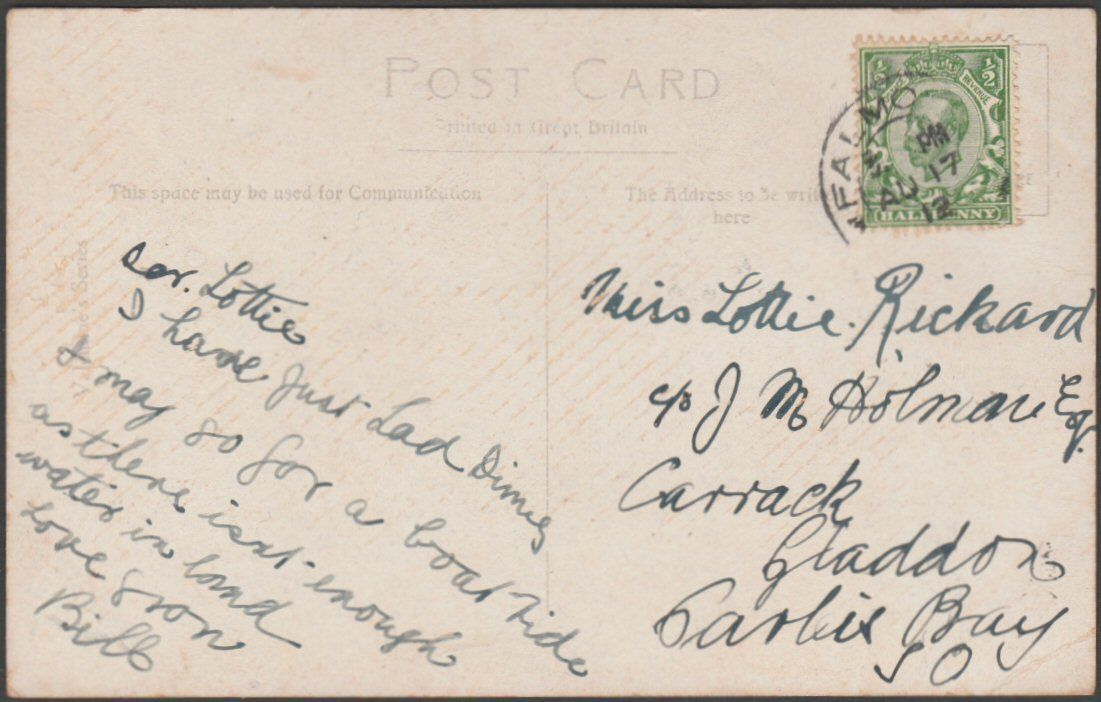 POST CARD
Printed in Great Britain
This space may be used for Communication
The Address to be writ
here
HALFPENNY
REVENUE
1/2
1/2
FALMO
PM
AU 17
12
Series
Lottie
I have just had Dinner
& may go for a boat ride
as there isnt enough
water in land
love from
Bill
Miss Lottie. Rickard
c/o J M Holman Esq.
Carrack
Gladdon
Carbis Bay
S O